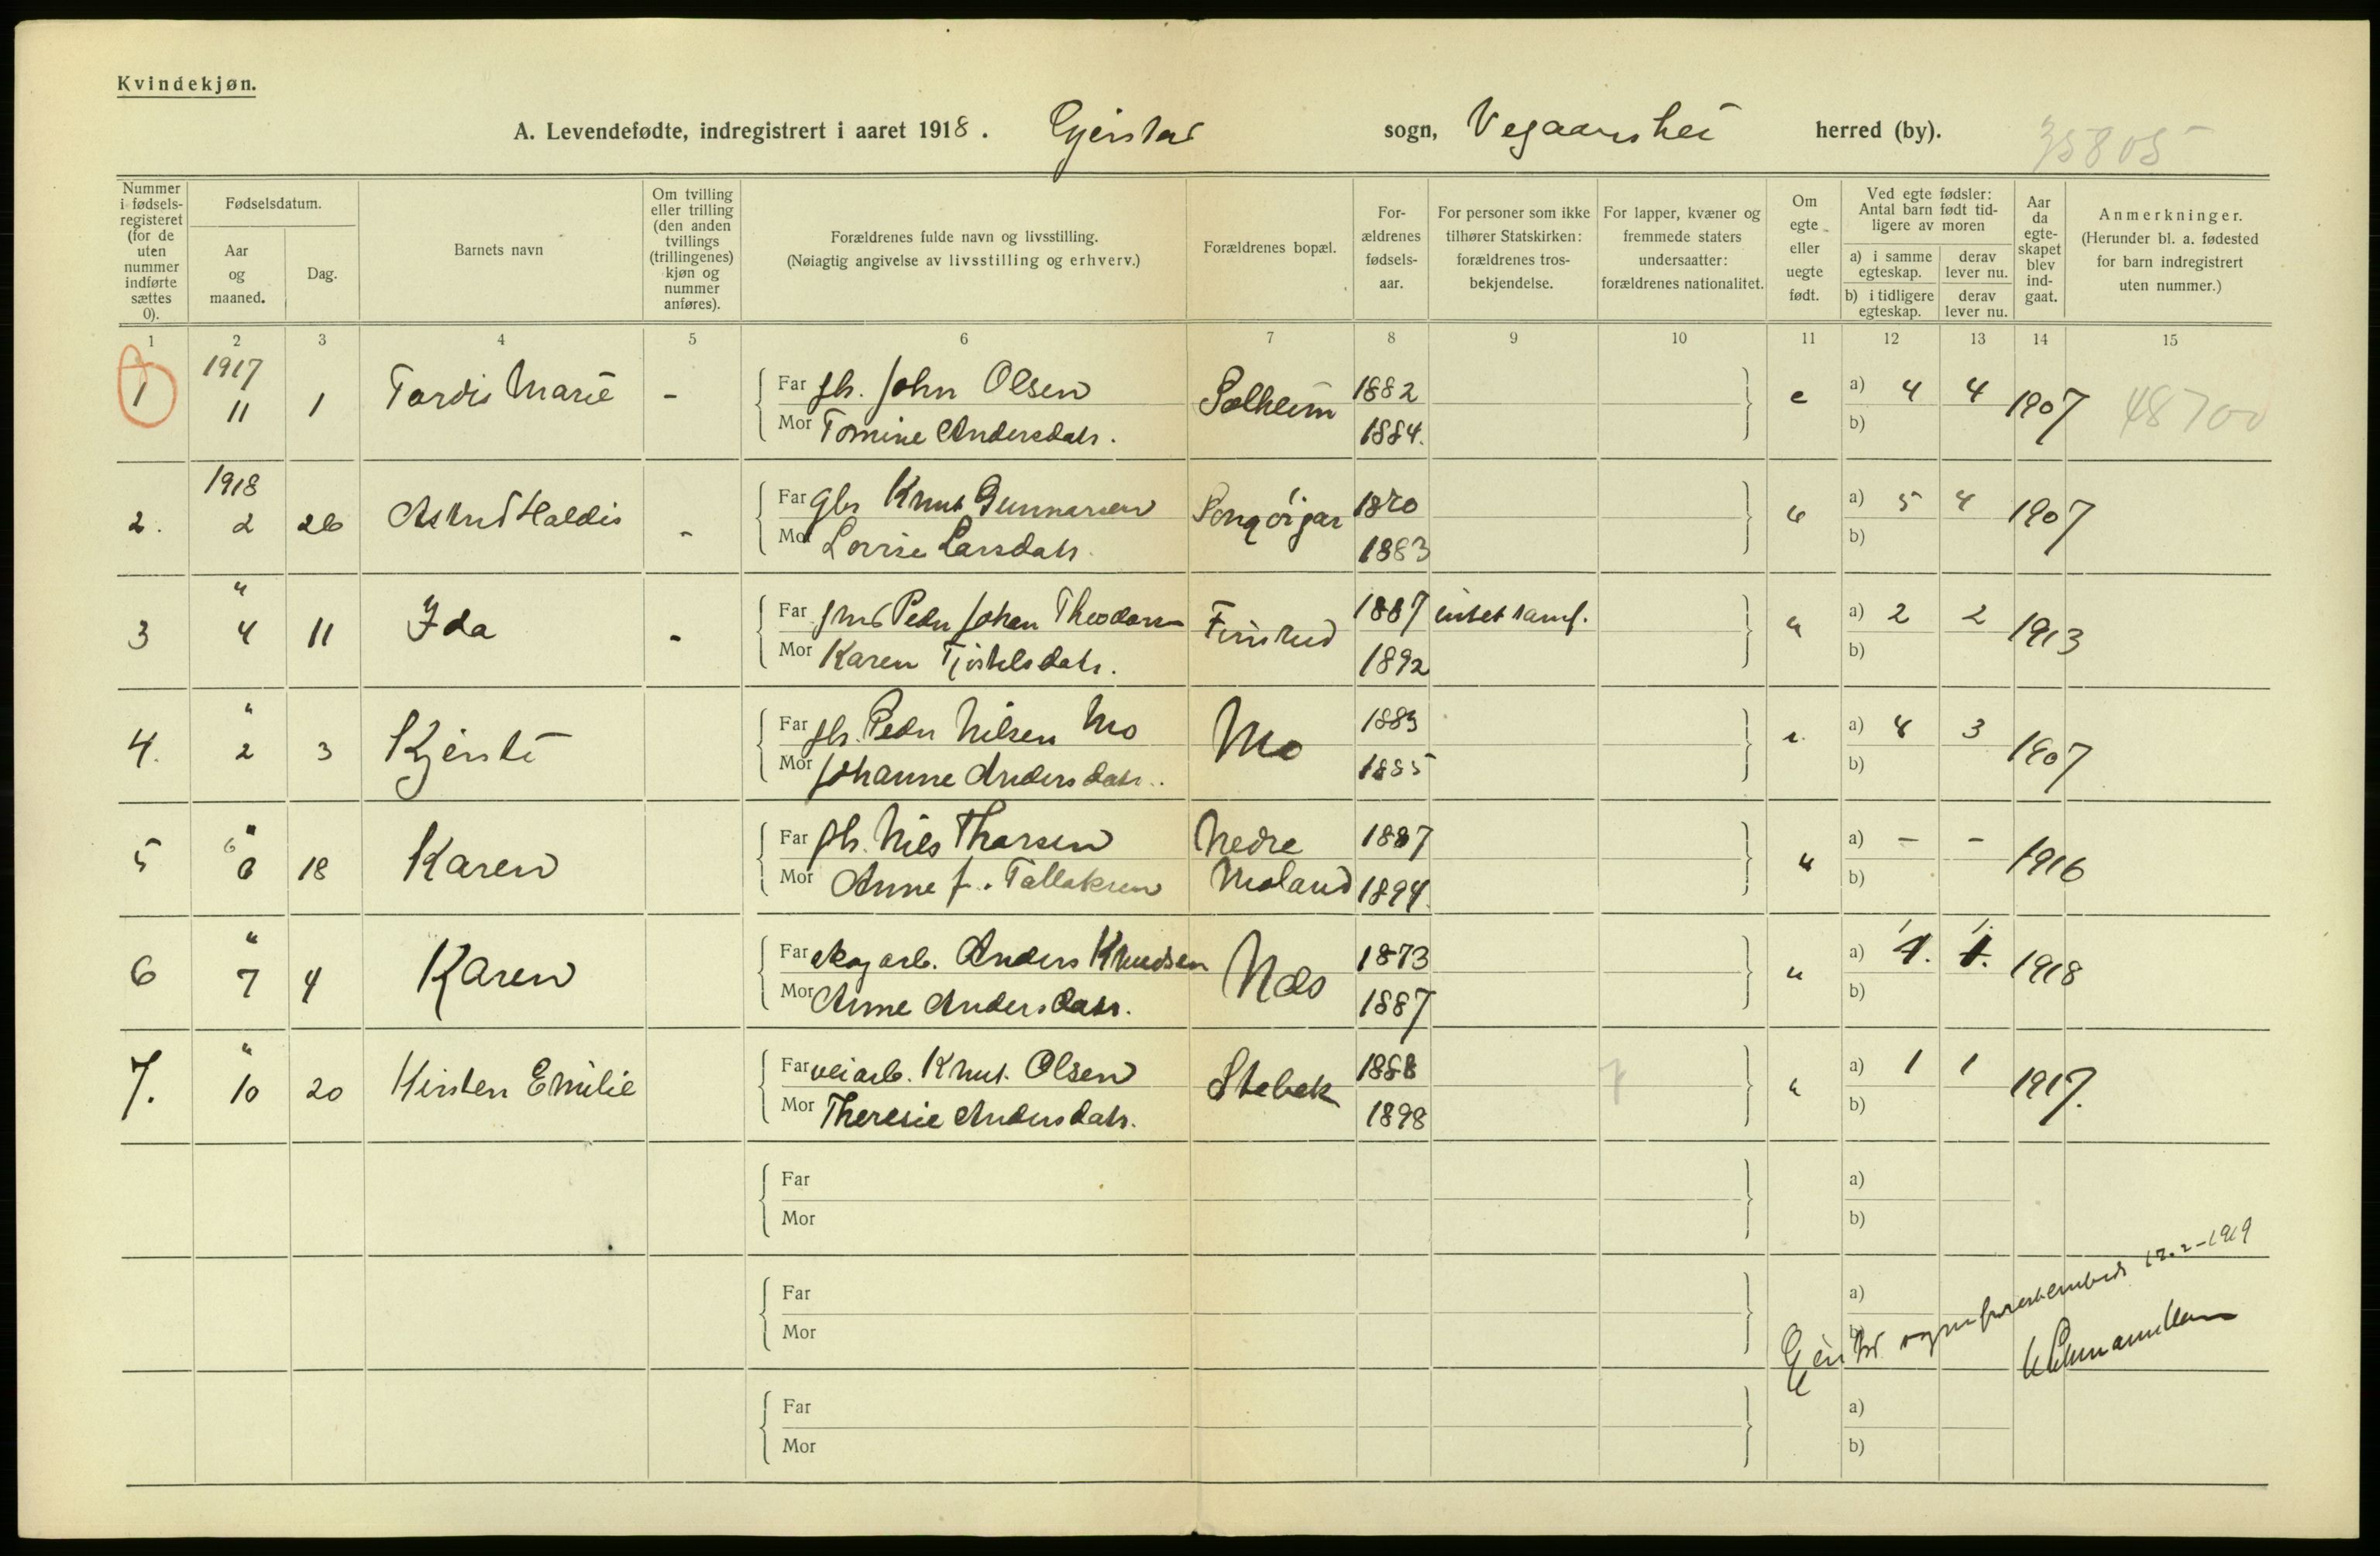 Kvindekjøn.
A. Levendefødte, indregistrert i aaret 1918. Gjerstad sogn, Vegaarshei herred (by).
35805
Nummer i fødselsregisteret (for de uten nummer indførte sættes 0).
Fødselsdatum.
Aar og maaned.
Dag.
Barnets navn
Om tvilling eller trilling (den anden tvillings (trillingenes) kjøn og nummer anføres).
Forældrenes fulde navn og livsstilling.
(Nøiagtig angivelse av livsstilling og erhverv.)
Forældrenes bopæl.
Forældrenes fødselsaar.
For personer som ikke tilhører Statskirken: forældrenes trosbekjendelse.
For lapper, kvæner og fremmede staters undersaatter: forældrenes nationalitet.
Om egte eller uegte født.
Ved egte fødsler: Antal barn født tidligere av moren
a) i samme egteskap.
derav lever nu.
b) i tidligere egteskap.
derav lever nu.
Aar da egteskapet blev indgaat.
Anmerkninger.
(Herunder bl. a. fødested for barn indregistrert uten nummer.)
1 2 3 4 5 6 7 8 9 10 11 12 13 14 15
1 1917 11 1 Tordis Marie - Far gb. John Olsen Solheim 1882 e a) 4 4 1907 48700
Mor Tomine Andersdatr. 1884. b)
2. 1918 2 26 Astrid Haldis - Far gbr Knut Gunnarsen 1870 " a) 5 4 1907
Mor Lovise Larsdatr. 1883 b)
3 " 4 11 Ida - Far Peder Johan Theodorsen Finsrud 1887 intet samf. " a) 2 2 1913
Mor Karen Tjostelsdatr. 1892 b)
4. " 2 3 Kjersti Far gb. Peder Nilsen Mo Mo 1883 e. a) 4 3 1907
Mor Johanne Andersdatr. 1885 b)
5 " 6 6 18 Karen Far gb. Nils Tharsen Nedre 1887 " a) - - 1916
Mor Anne J. Tallaksen Moland 1894. b)
6 " 7 4 Karen Far skogarb. Anders Knudsen Næs 1873 " a) 1. 1. 1918
Mor Anne Andersdatr. 1887 b)
7. " 10 20 Kirsten Emilie Far veiarb. Knut Olsen Stebek 1888 7 " a) 1 1 1917.
Mor Theresie Andersdatr. 1898 b)
Far a)
Mor b)
Far a)
Mor b)
Far a)
Mor b)
Gjerstad sogneprestembede 17.2-1919